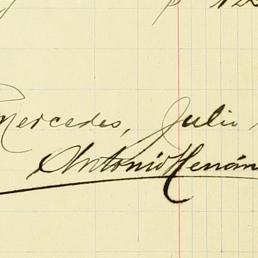 Mercedes, Julio
Antonio Hernán